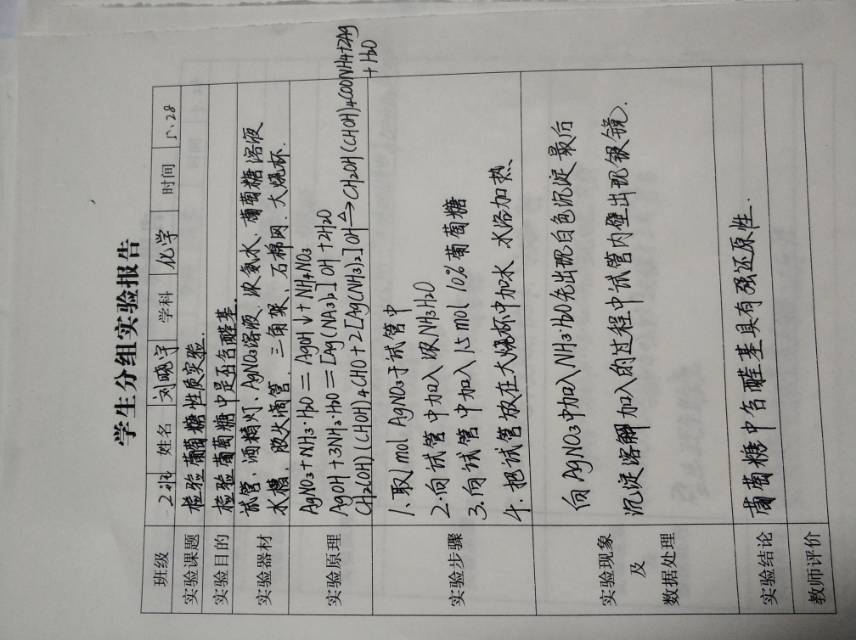 学生分组实验报告
班级 二班 姓名 刘晓宇 学科 化学 时间 5.28
实验课题 检验葡萄糖性质实验.
实验目的 检验葡萄糖中是否含醛基.
实验器材 试管、酒精灯、AgNO3溶液、浓氨水、葡萄糖溶液
水槽、胶头滴管、三角架、石棉网、大烧杯.
实验原理 AgNO3+NH3·H2O=AgOH↓+NH4NO3
AgOH+3NH3·H2O=[Ag(NH3)2]OH+2H2O
CH2(OH)(CHOH)4CHO+2[Ag(NH3)2]OH→△CH2OH(CHOH)4COONH4+2Ag
+H2O
实验步骤 1、取1mol AgNO3于试管中
2.向试管中加入浓NH3H2O
3.向试管中加入1.5mol 10%葡萄糖
4.把试管放在大烧杯中加水 水浴加热
实验现象及数据处理 向AgNO3中加入NH3·H2O先出现白色沉淀 最后
沉淀溶解 加入的过程中试管内壁出现银镜.
实验结论 葡萄糖中含醛基具有强还原性.
教师评价